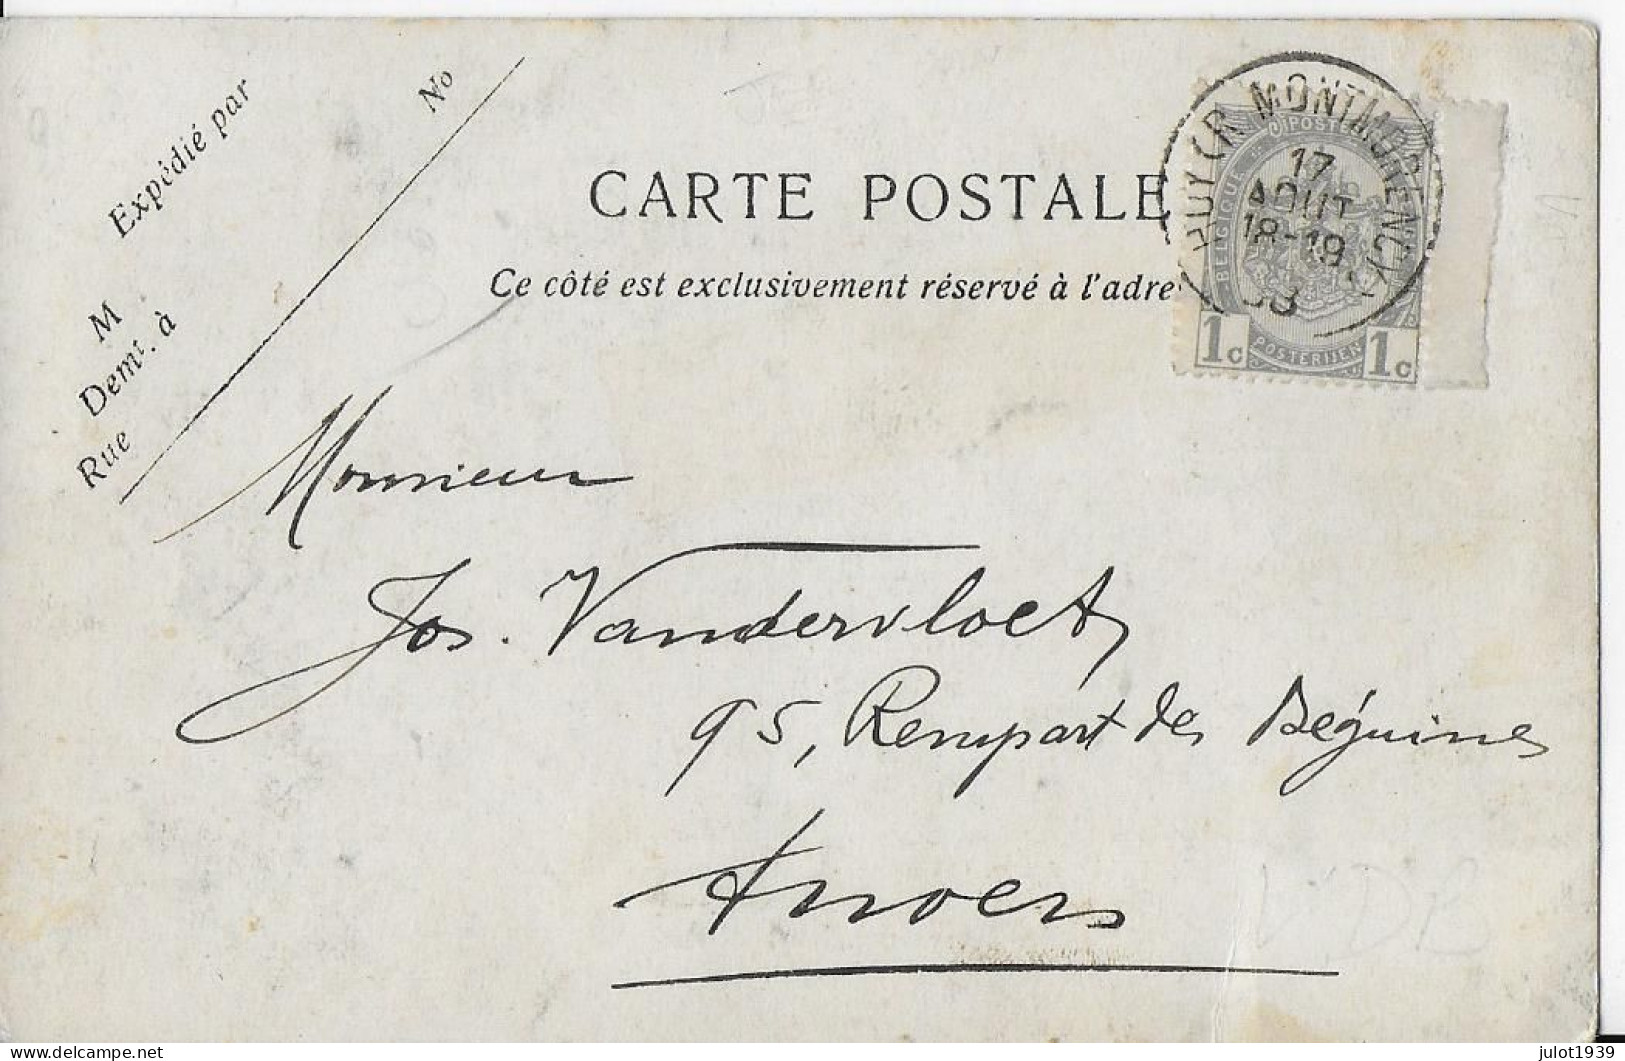 Expédié par
No
M
Demt. à
Rue
CARTE POSTALE
Ce côté est exclusivement réservé à l'adre
HUY (R MONTMORENCY
17
AOUT
18-19
08
POSTES
BELGIQUE
BELGIË
POSTERIJEN
1c 1c
Monsieur
Jos. Vandervloet
95, Rempart des Béguines
Anvers
VDL
julot1939